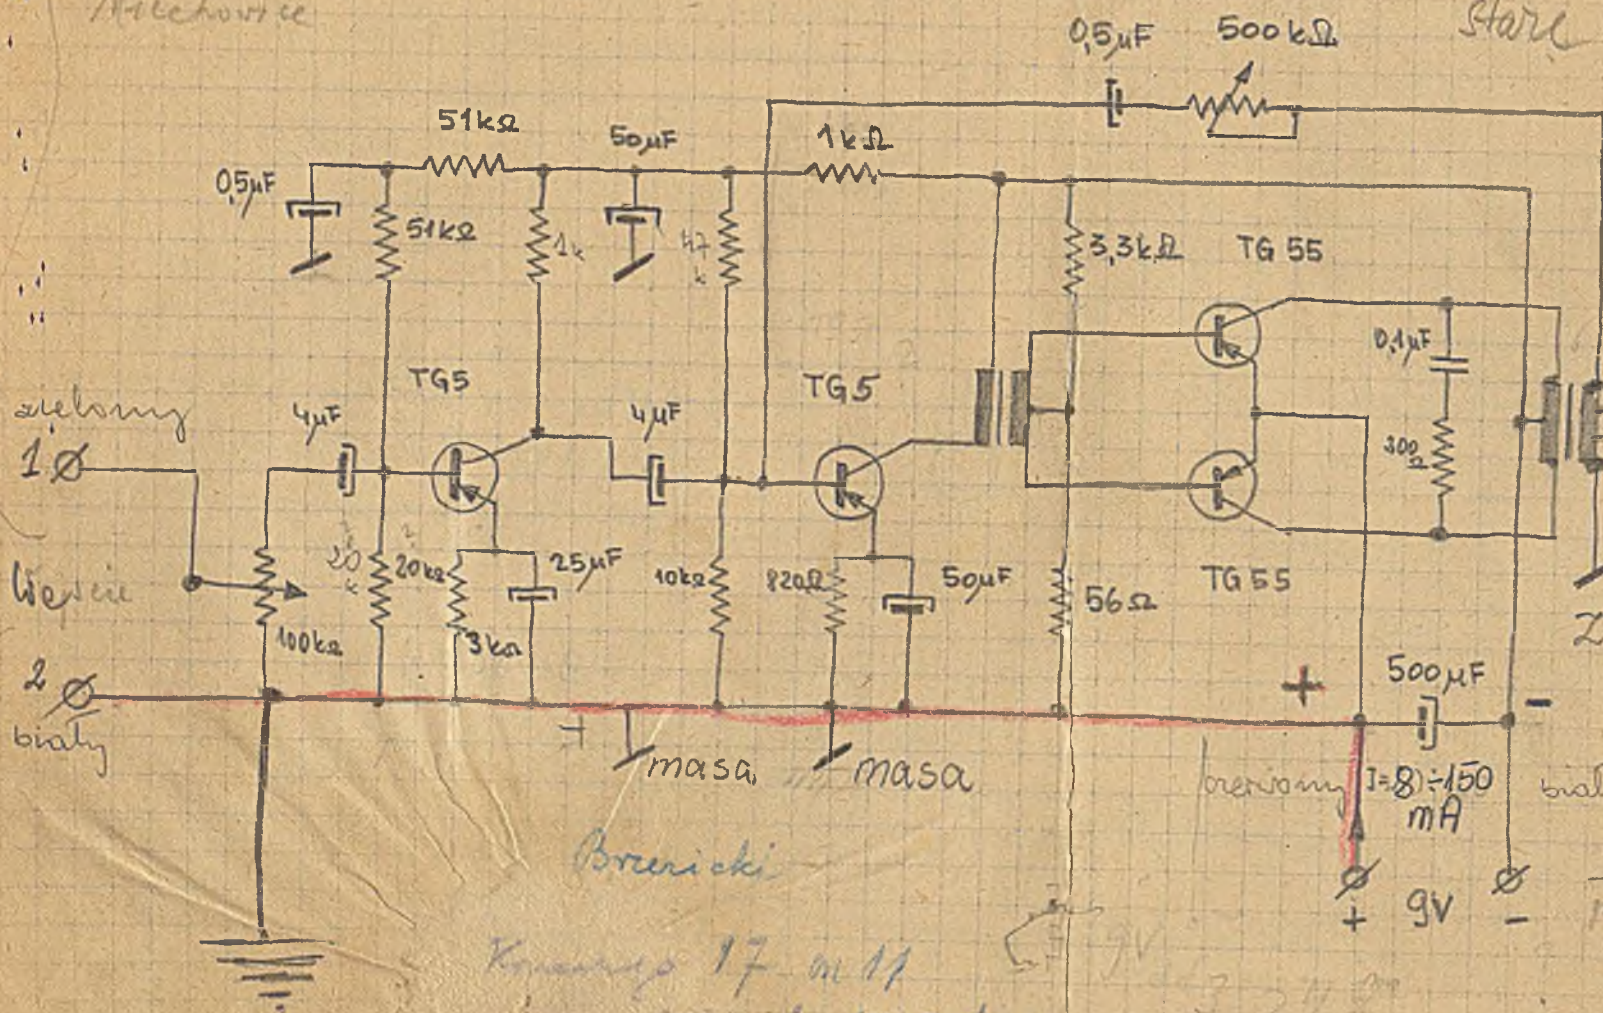 Miechowice
stare
0,5µF 500kΩ
51kΩ
50µF
1kΩ
0,5µF
51kΩ
1k
47
k
3,3kΩ
TG 55
0,1µF
TG5
TG5
zielony
4µF
4µF
300
Ω
1
Wejście
20
k
20kΩ
25µF
10kΩ
820Ω
50µF
56Ω
TG55
100kΩ
3kΩ
2
biały
+
500µF
-
+
masa
masa
I=80÷150
mA
Brzezicki
+
9V
-
17 m 11
9V